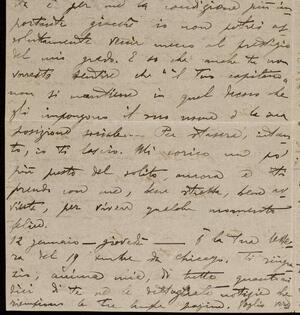 ta è per me la condizione più im-
portante giacché io non potrei as-
solutamente venir meno al prestigio
del mio grado. E so che anche tu non
vorresti sentire che "il tuo capitano"
non si mantiene in quel decoro che
gli impongono il suo nome e la sua
posizione sociale. Per stasera, intan-
to, io ti lascio. Mi corico un po'
più presto del solito, ancora e ti
prendo con me, bene stretta, bene av-
vinta, per vivere qualche momento
felice.
12 gennaio - giovedì - È la tua lette-
ra del 19 da Chicago. Ti ringra-
zio, anima mia, di tutte quante
di te e dettagliate notizie che
riempiono le tre lunghe pagine. Voglio